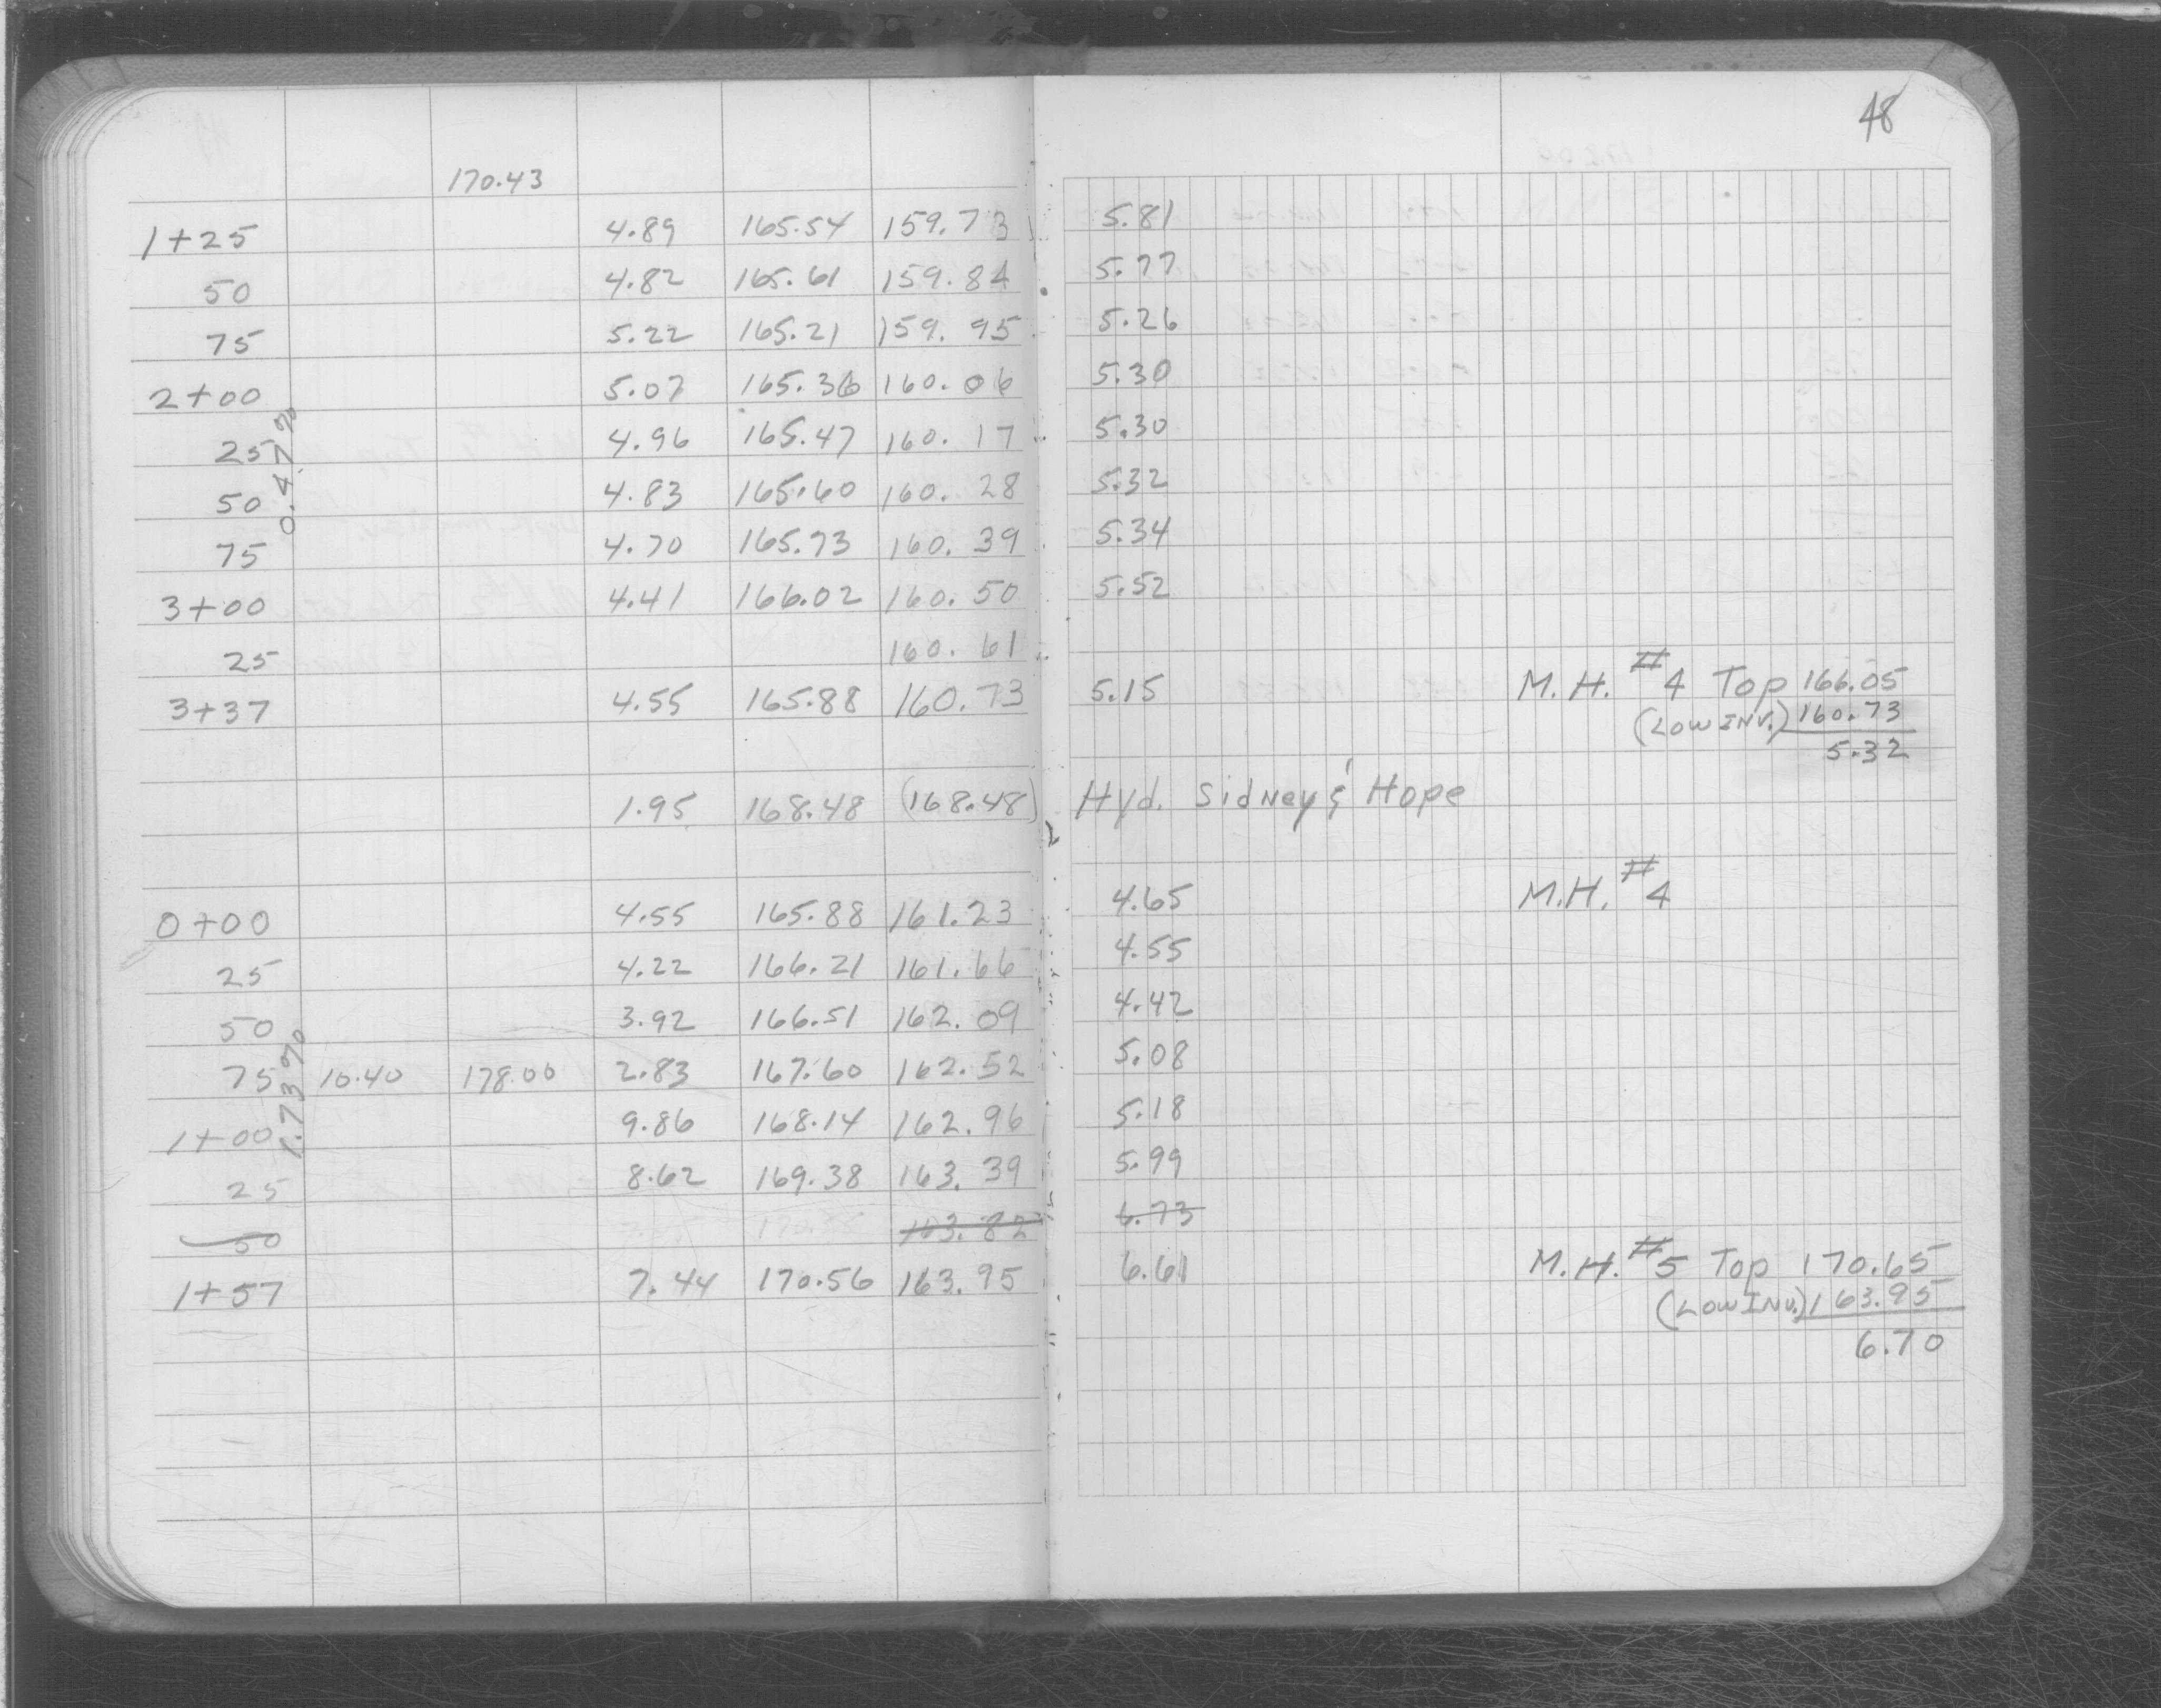 48
170.43
1+25 4.89 165.54 159.73 5.81
50 4.82 165.61 159.84 5.77
75 5.22 165.21 159.95 5.26
2+00 5.07 165.36 160.06 5.30
25 4.96 165.47 160.17 5.30
0.47%
50 4.83 165.60 160.28 5.32
75 4.70 165.73 160.39 5.34
3+00 4.41 166.02 160.50 5.52
25 160.61
3+37 4.55 165.88 160.73 5.15 M.H. #4 Top 166.05
(LOW INV.) 160.73
5.32
1.95 168.48 (168.48) Hyd. Sidney & Hope
0+00 4.55 165.88 161.23 4.65 M.H. #4
25 4.22 166.21 161.66 4.55
50 3.92 166.51 162.09 4.42
75 10.40 178.00 2.83 167.60 162.52 5.08
1.73%
1+00 9.86 168.14 162.96 5.18
25 8.62 169.38 163.39 5.99
50 163.82 6.73
1+57 7.44 170.56 163.95 6.61 M.H. #5 Top 170.65
(LOW INV.) 163.95
6.70